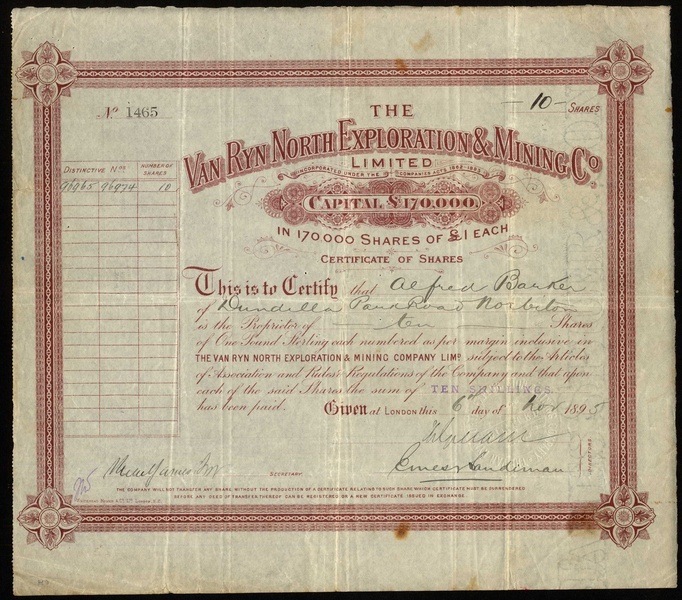 Nº 1465
—10— SHARES
THE
VAN RYN NORTH EXPLORATION & MINING Cº
LIMITED
INCORPORATED UNDER THE COMPANIES ACTS
CAPITAL £170,000
IN 170,000 SHARES OF £1 EACH
CERTIFICATE OF SHARES
DISTINCTIVE Nos NUMBER OF SHARES
96965 96974 10
This is to Certify that Alfred Barker
of Road Norbiton
is the Proprietor of — ten — Shares
of One Pound Sterling each numbered as per margin inclusive in
THE VAN RYN NORTH EXPLORATION & MINING COMPANY LIMD subject to the Articles
of Association and Rules & Regulations of the Company and that upon
each of the said Shares the sum of TEN SHILLINGS
has been paid. Given at LONDON this 6th day of Nov 1895
Ernest Sandeman
SECRETARY.
DIRECTORS
THE COMPANY WILL NOT TRANSFER ANY SHARE WITHOUT THE PRODUCTION OF A CERTIFICATE RELATING TO SUCH SHARE WHICH CERTIFICATE MUST BE SURRENDERED
BEFORE ANY DEED OF TRANSFER THEREOF CAN BE REGISTERED OR A NEW CERTIFICATE ISSUED IN EXCHANGE.